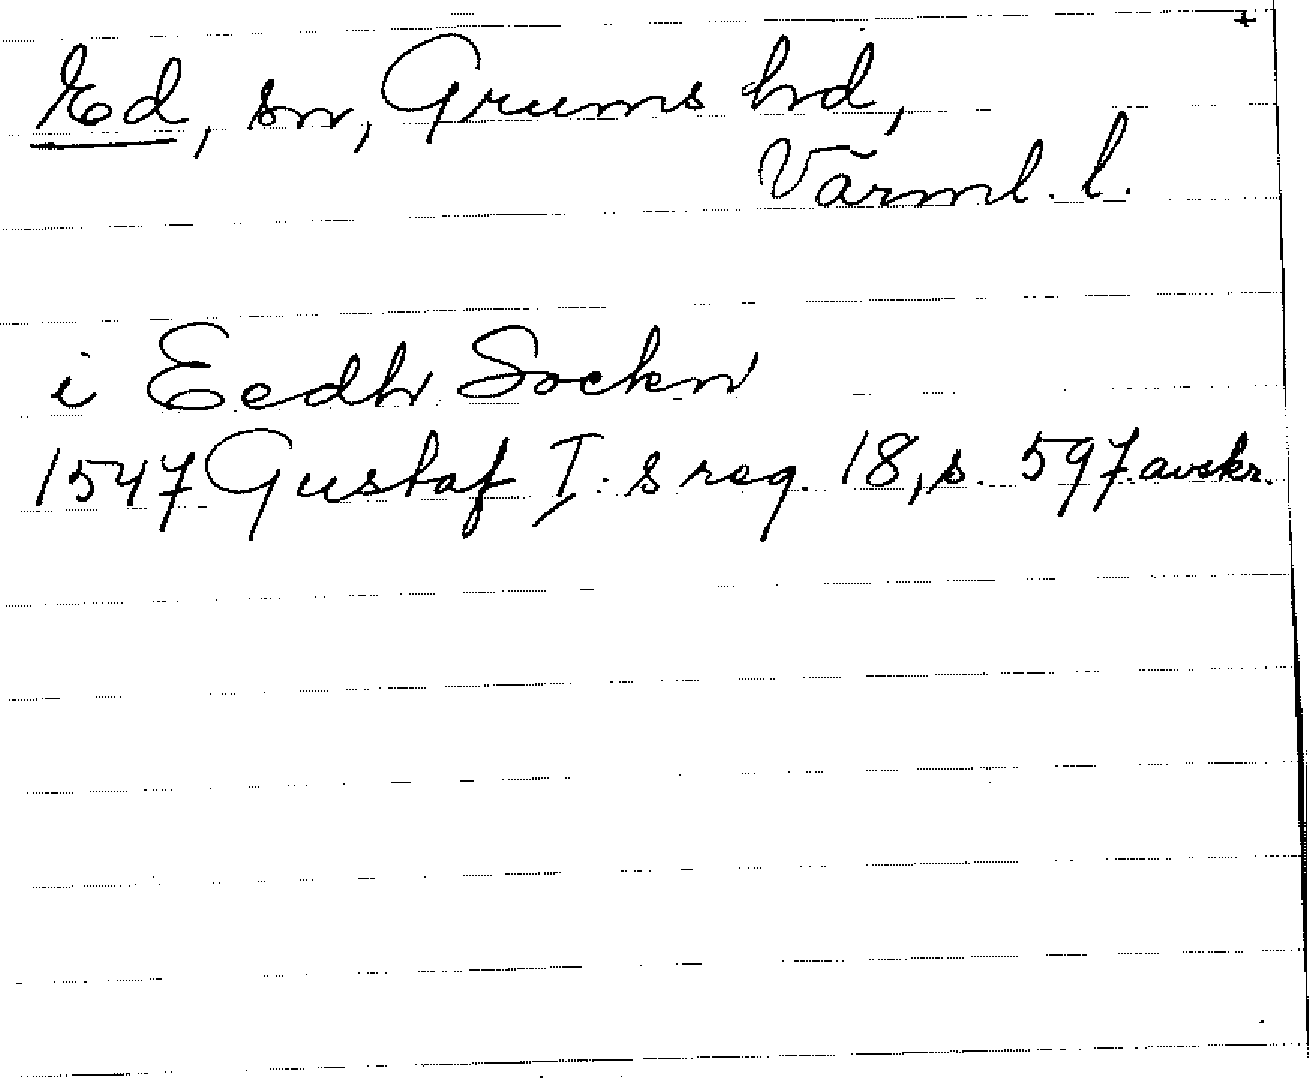 Ed, sn, Grums hd,
Värml. l.
i Eedh Sockn
1547 Gustaf I:s reg. 18, s. 597 avskr.